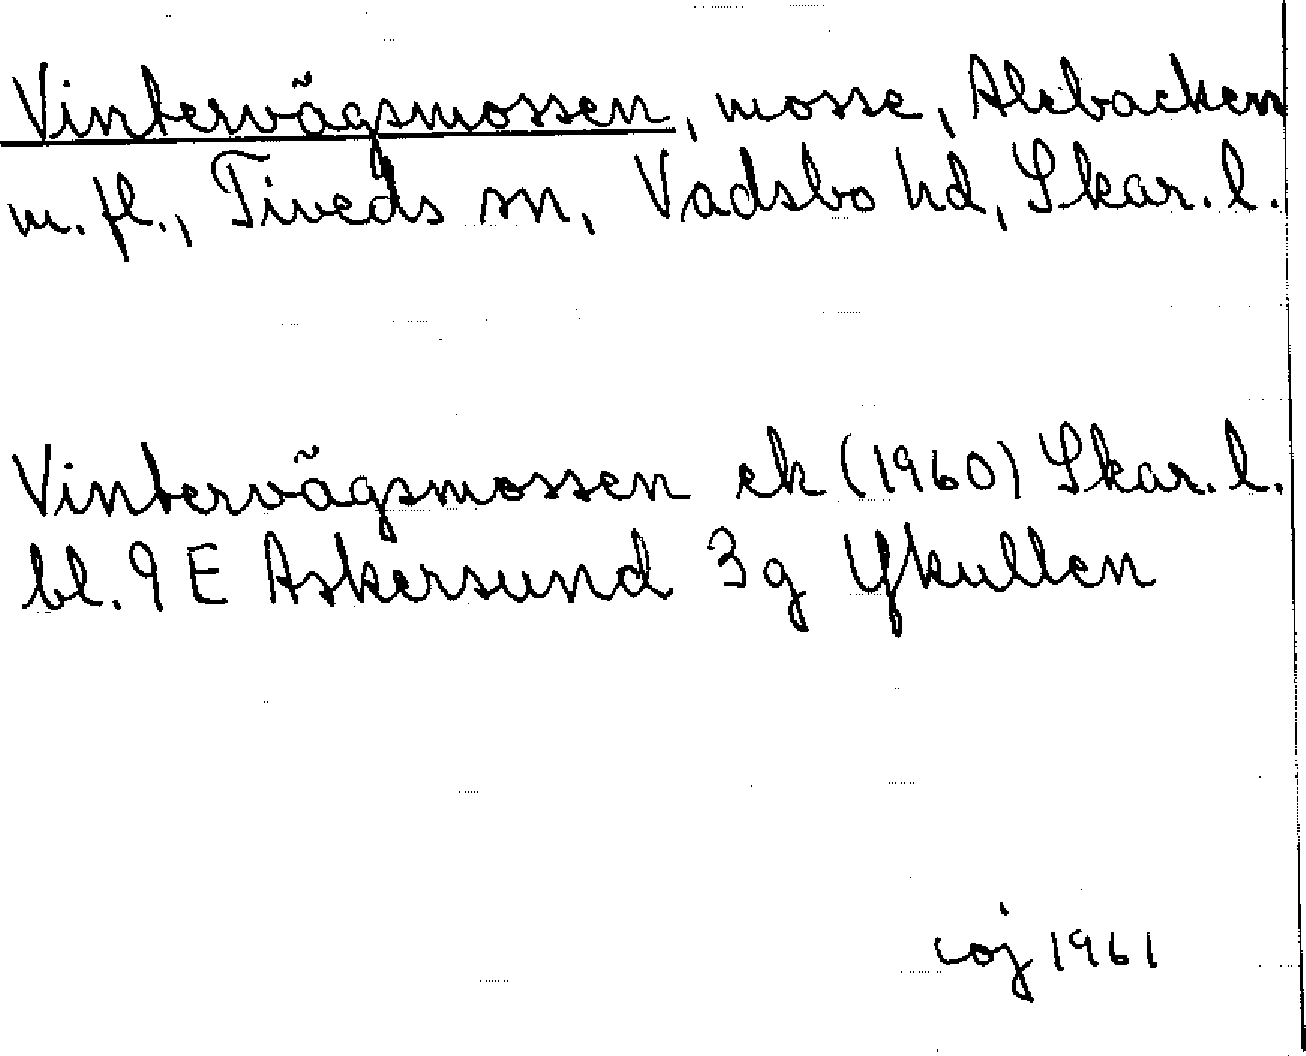 Vintervägsmossen, mosse, Alebacken
m. fl., Tiveds sn, Vadsbo hd, Skar. l.
Vintervägsmossen ek (1960) Skar. l.
bl. 9 E Askersund 3 g Ykullen
coj 1961